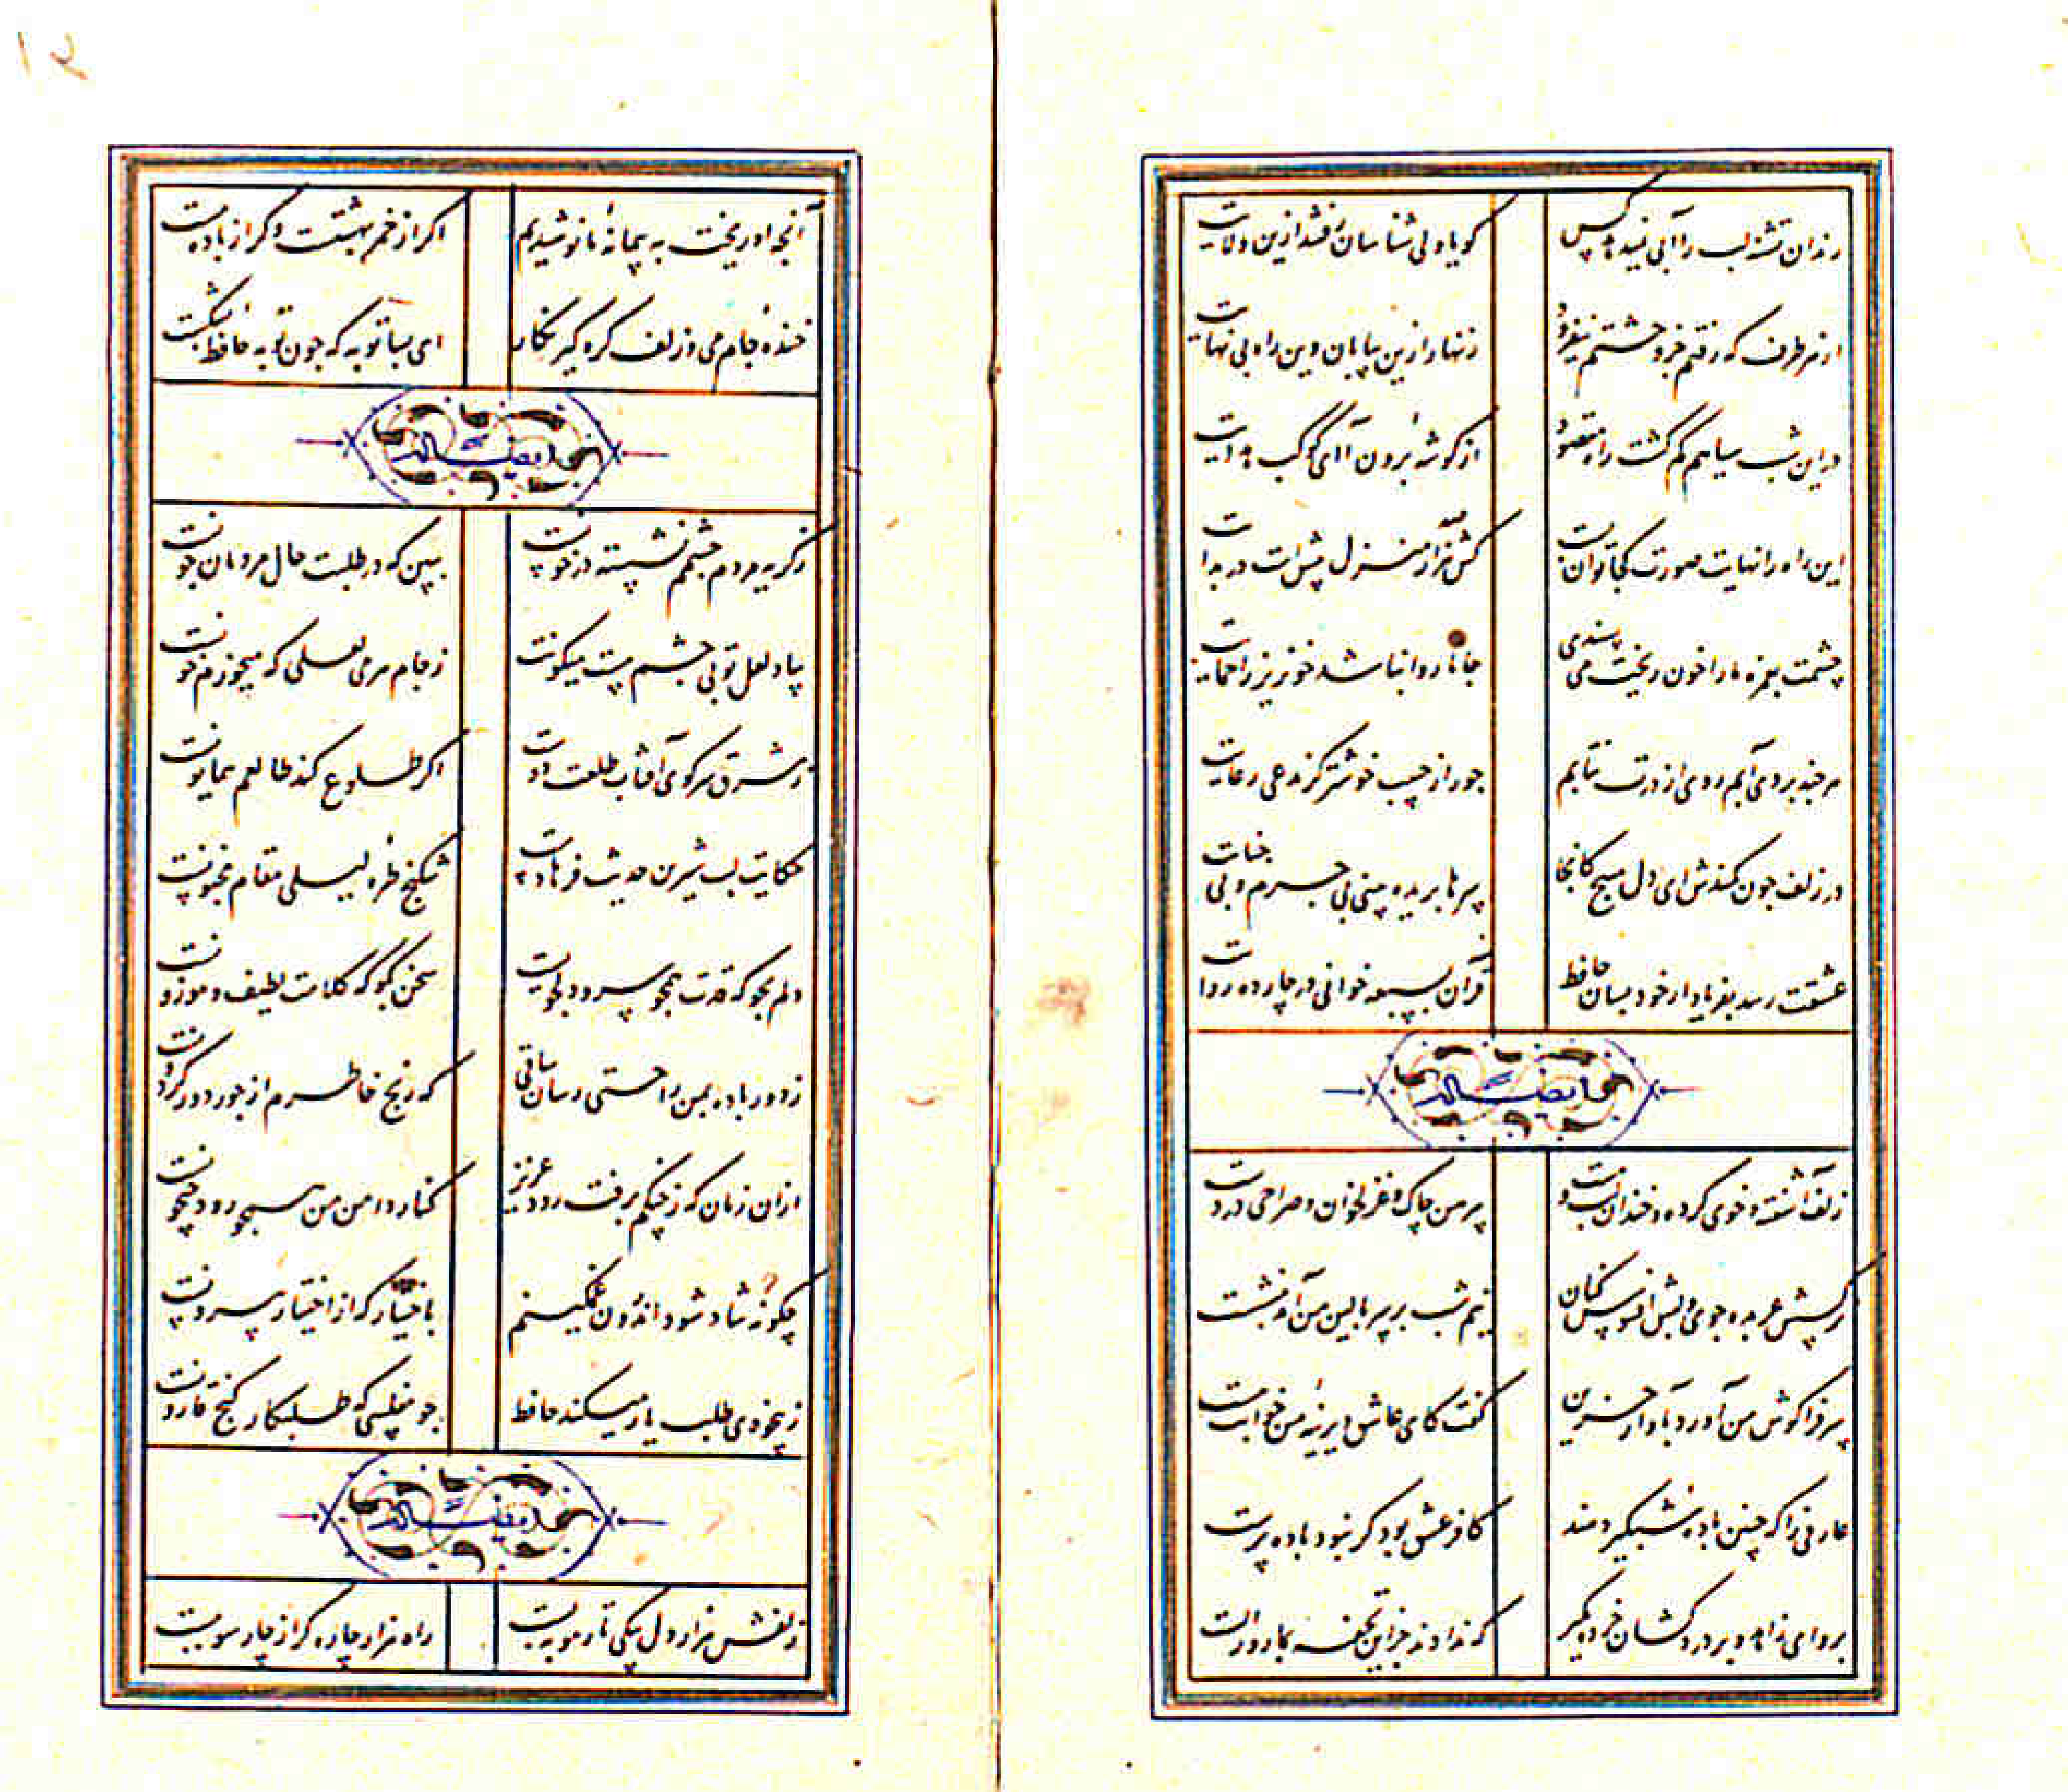 رندان تشنه لب را آبی نمیدهد کس
کویا ولی شناسان رفتند ازین ولایت
از هر طرف که رفتم جز وحشتم نیفزود
زنهار ازین بیابان وین راه بی نهایت
در این شب سیاهم کم کشت راه مقصود
از کوشهٔ برون آ ای کوکب هدایت
این راه را نهایت صورت کجا توان بست
کش صد هزار منزل پیش است در بدایت
چشمت بغمزه ما را خون ریخت می پسندی
جانا روا نباشد خونریز را حمایت
هر چند بردی آبم روی از درت نتابم
جور از حبیب خوشتر کز مدعی رعایت
در زلف چون کمندش ای دل مپیچ کانجا
سرها بریده بینی بی جرم و بی جنایت
عشقت رسد بفریاد ار خود بسان حافظ
قرآن ز بر بخوانی در چارده روایت
زلف آشفته و خوی کرده و خندان لب و مست
پیرهن چاک و غزلخوان و صراحی در دست
نرکسش عربده جوی و لبش افسوس کنان
نیم شب بر سر بالین من آمد بنشست
سر فرا کوش من آورد بآواز حزین
کفت کای عاشق دیرینهٔ من خوابت هست
عارفی را که چنین بادهٔ شبکیر دهند
کافر عشق بود کر نبود باده پرست
برو ای زاهد و بر دردکشان خرده مکیر
که ندادند جز این تحفه بما روز الست
۱۲
آنچه او ریخت به پیمانهٔ ما نوشیدیم
اکر از خمر بهشتست وکر از باده مست
خندهٔ جام می و زلف کره کیر نکار
ای بسا توبه که چون توبه حافظ بشکست
ز کریه مردم چشمم نشسته در خونست
ببین که در طلبت حال مردمان چونست
بیاد لعل تو بی چشم مست میکونت
ز جام مر می لعلی که میخورم خونست
ز مشرق سر کوی آفتاب طلعت تو
اکر طلوع کند طالعم همایونست
حکایت لب شیرین حدیث فرهادست
شکنج طرهٔ لیلی مقام مجنونست
دلم بجو که قدت همچو سرو دلجویست
سخن بکو که کلامت لطیف و موزونست
ز دور باده بمن راحتی رسان ساقی
که رنج خاطرم از جور دور کردونست
از آن زمان که ز چنکم برفت رود عزیز
کنار دامن من همچو رود جیحونست
چکونه شاد شود اندرون غمکینم
باختیار که از اختیار بیرونست
ز بیخودی طلب یار میکند حافظ
چو مفلسی که طلبکار کنج قارونست
زلفش هزار دل بیکی تار مو ببست
راه هزار چاره کر از چار سو ببست